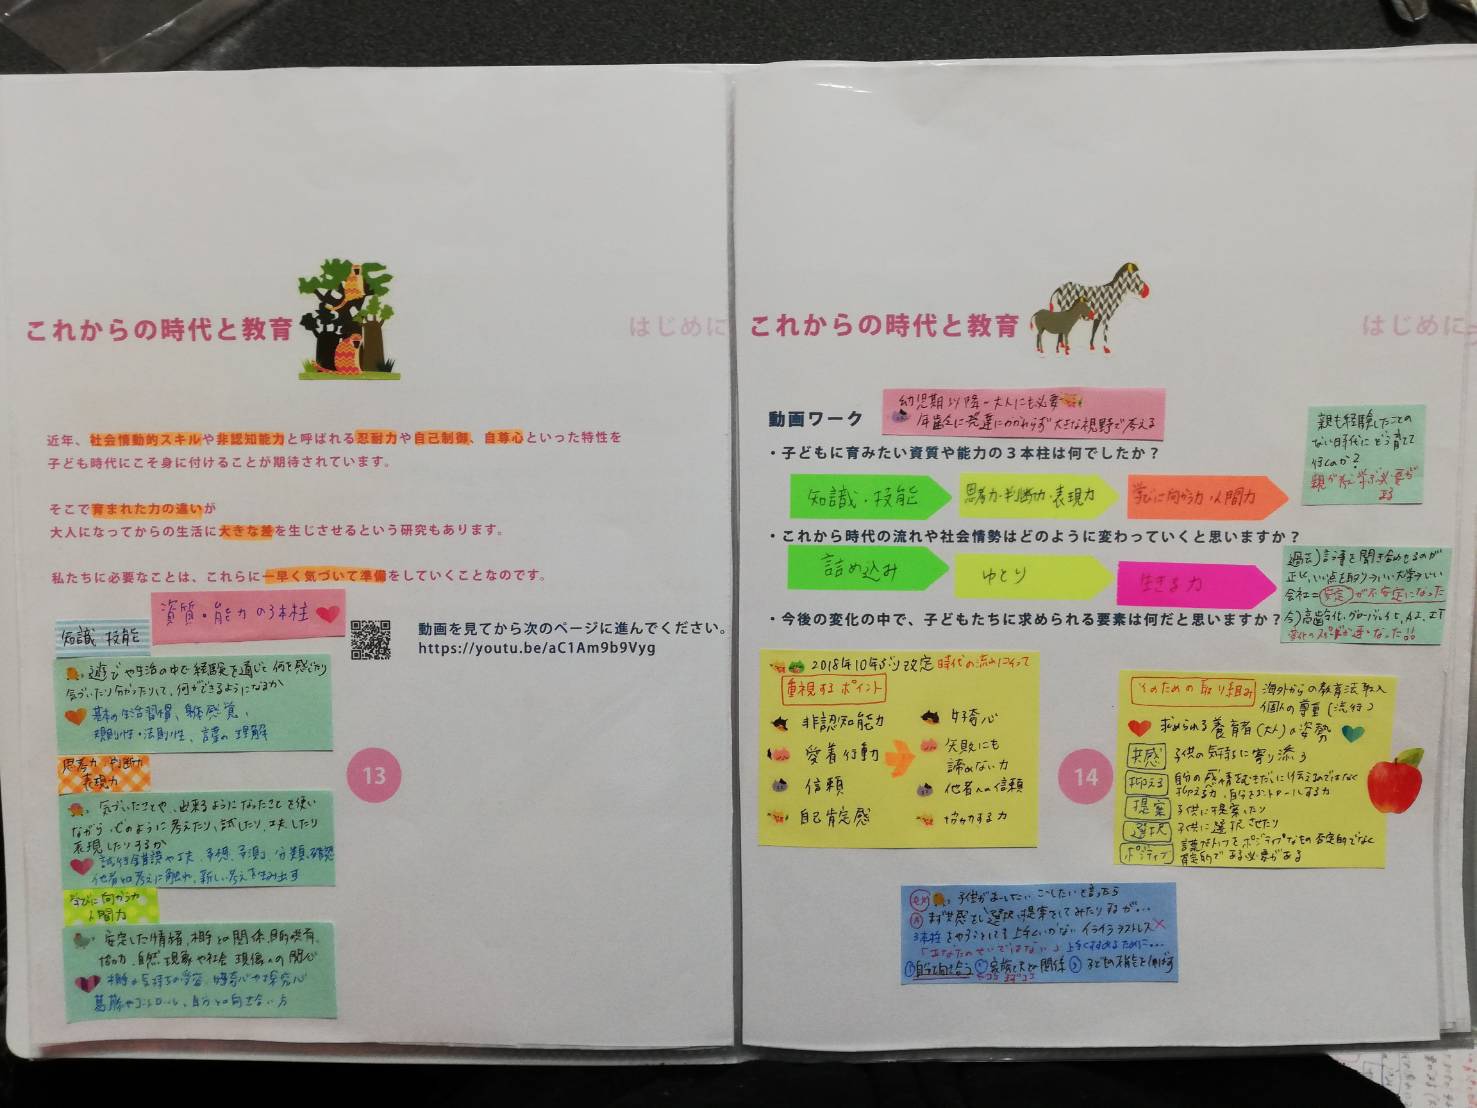 これからの時代と教育
はじめに
近年、社会情動的スキルや非認知能力と呼ばれる忍耐力や自己制御、自尊心といった特性を
子ども時代にこそ身に付けることが期待されています。
そこで育まれた力の違いが
大人になってからの生活に大きな差を生じさせるという研究もあります。
私たちに必要なことは、これらに一早く気づいて準備をしていくことなのです。
資質・能力の3本柱
動画を見てから次のページに進んでください。
https://youtu.be/aC1Am9b9Vyg
知識 技能
遊びや生活の中で経験を通じて何を感じたり
気づいたり分かったりして、何ができるようになるか
基本的生活習慣、身体感覚、
規則性・法則性、言葉の理解
思考力 判断力
表現力
気づいたことや、出来るようになったことを使い
ながら、どのように考えたり、試したり、工夫したり
表現したりするか
試行錯誤や工夫、予想、予測、分類、確認
他者の考えに触れ、新しい考えを生み出す
学びに向かう力
人間力
安定した情緒、相手との関係、目的の共有、
協力、自然現象や社会現象への関心
相手の気持ちの受容、好奇心や探究心
葛藤やコントロール、自分との向き合い方
13
これからの時代と教育
はじめに
動画ワーク
幼児期以降〜大人にも必要
年齢や発達にかかわらず大きな視野で考える
・子どもに育みたい資質や能力の３本柱は何でしたか？
知識・技能
思考力・判断力・表現力
学びに向かう力・人間力
親も経験したことの
ない時代にどう育てて
行くのか？
親が考え学ぶ必要が
ある
・これから時代の流れや社会情勢はどのように変わっていくと思いますか？
詰め込み
ゆとり
生きる力
過去)言う事を聞き合わせるのが
正しい、いい点を取り→いい大学→いい
会社＝安定が不安定になった
今)高齢化、グローバル化、AI、IT
変化のスピードが速くなった!!
・今後の変化の中で、子どもたちに求められる要素は何だと思いますか？
2018年10年ぶり改定 時代の流れによって
重視するポイント
非認知能力
愛着行動
信頼
自己肯定感
好奇心
失敗にも
諦めない力
他者への信頼
協力する力
14
そのための取り組み 海外からの教育法導入
個人の尊重(流行)
求められる養育者(大人)の姿勢
共感 子供の気持ちに寄り添う
抑える 自分の感情をむだいに伝えるのではなく
抑える力、自分をコントロールする力
提案 子供に提案したり
選択 子供に選択させたり
ポジティブ 言葉がけもポジティブなもの否定的でなく
肯定的である必要がある
子供が〇〇したい、こうしたいと言ったら
まず共感をし選択、提案をしてみたりするが…
3本柱をやろうとしても上手くいかないイライラストレス
「あなたのせいではない」上手くすすめるために…
①自分と向き合う ②家族、夫との関係 ③子どもの才能を伸ばす